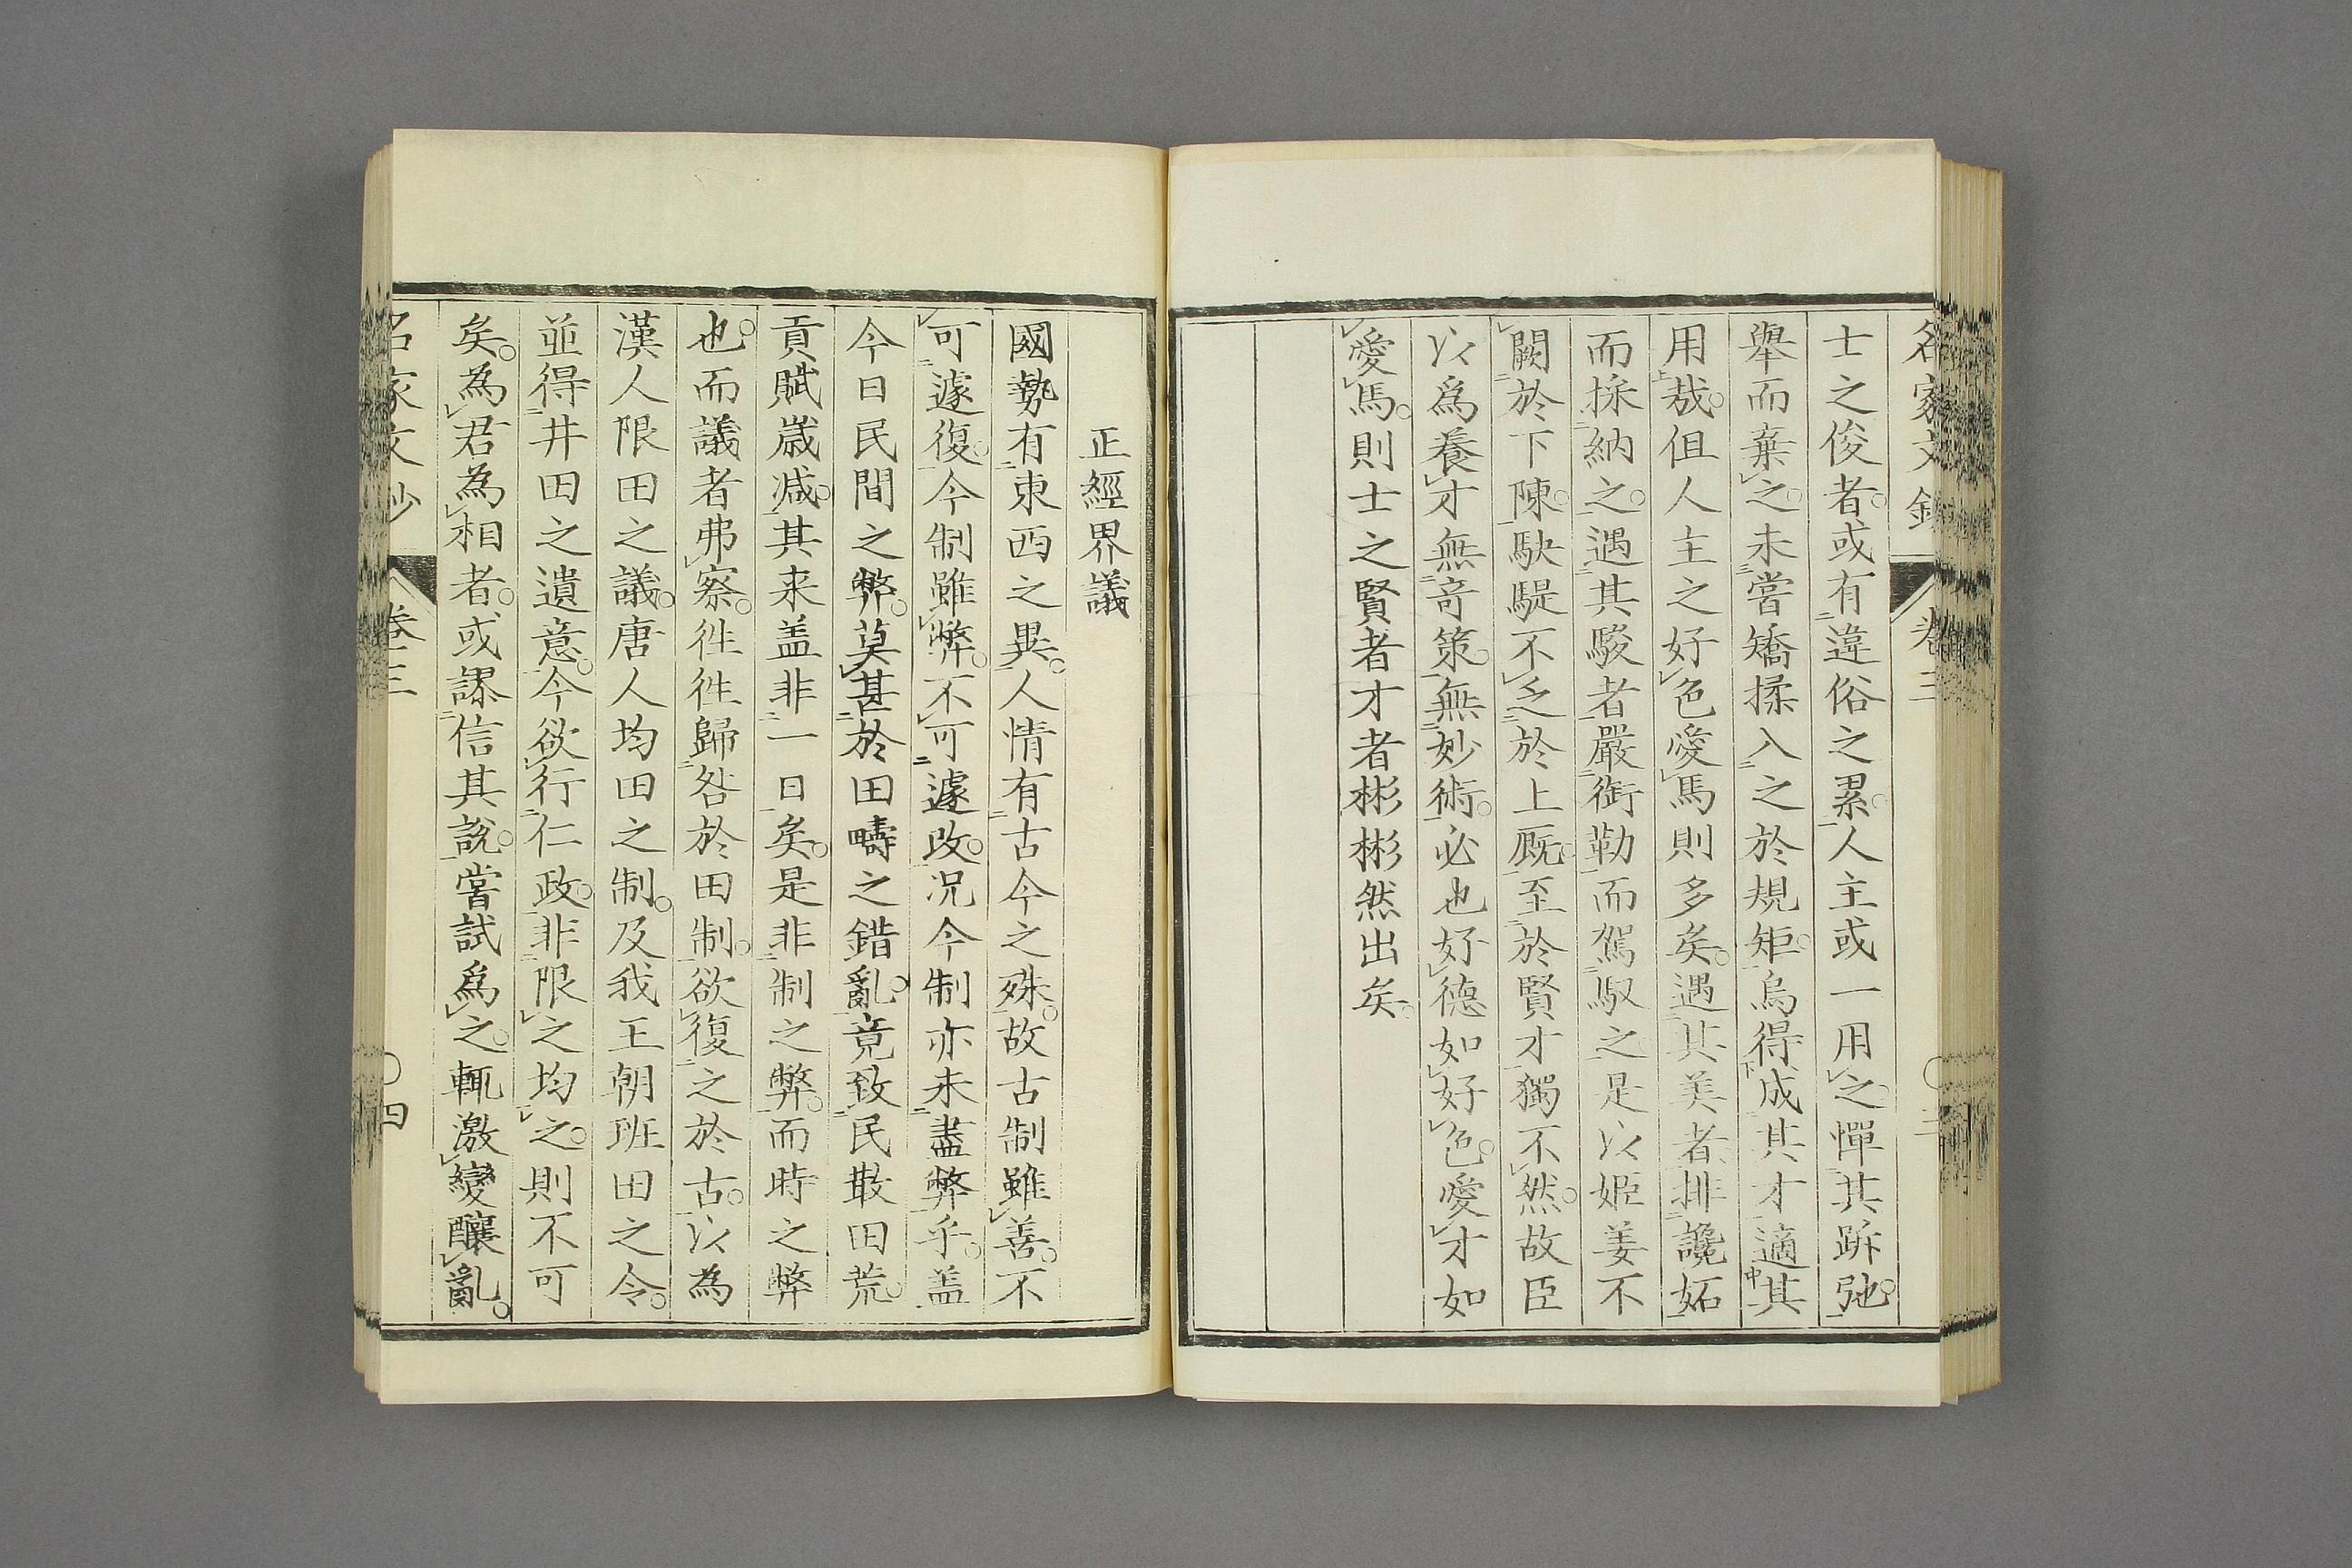 名家文鈔 卷三 〇三
士之俊者或有違俗之累人主或一用之憚其跅弛
舉而棄之未嘗矯揉入之於規矩烏得成其才適其
用哉但人主之好色愛馬則多矣遇其美者排讒妬
而採納之遇其駿者嚴銜勒而駕馭之是以姬姜不
闕於下陳駃騠不乏於上厩至於賢才獨不然故臣
以爲養才無奇策無妙術必也好德如好色愛才如
愛馬則士之賢者才者彬彬然出矣
正經界議
國勢有東西之異人情有古今之殊故古制雖善不
可遽復今制雖弊不可遽改况今制亦未盡弊乎盖
今日民間之弊莫甚於田疇之錯亂竟致民散田荒
貢賦歲减其来盖非一日矣是非制之弊而時之弊
也而議者弗察徃徃歸咎於田制欲復之於古以為
漢人限田之議唐人均田之制及我王朝班田之令
並得井田之遺意今欲行仁政非限之均之則不可
矣為君為相者或謬信其說嘗試爲之輒激變釀亂
名家文鈔 卷三 〇四